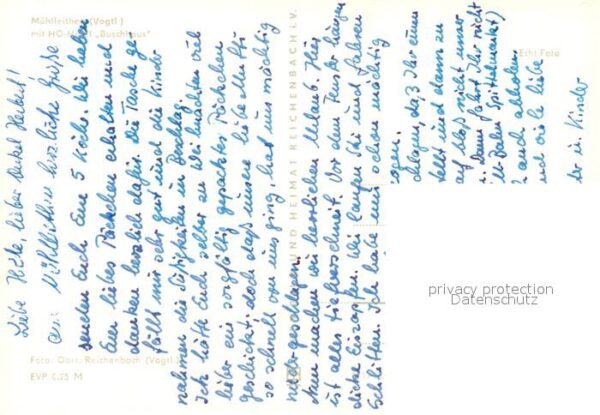 Mühlleithen (Vogtl.)
mit HO-Hotel "Buschhaus"
Echt Foto
Liebe Käte, lieber Onkel Herbert!
Aus Mühlleithen herzliche Grüße
senden Euch Eure 5 Köhe. Wir haben
Euer liebes Päckchen erhalten und
danken herzlich dafür. Die Tasche ge-
fällt mir sehr gut und die Kinder
nahmen die Süßigkeiten in Beschlag.
Ich hatte Euch selber zu Weihnachten viel
lieber ein sorgfältig gepacktes Päckchen
geschickt, doch daß unsere liebe Mutti
so schnell von uns ging, hat uns mächtig
niedergeschlagen.
Nun machen wir herrlichen Urlaub. Hier
ist alles tief verschneit. Vor dem Fenster hängen
dicke Eiszapfen. Wir laufen Ski und fahren
Schlitten. Ich habe mich schon mächtig
daß Ihr euch
stellt und dann zu
auf bloß nicht unser
Dann fahrt Ihr nicht
Bahn Spittelmarkt)
auch abholen.
und viele liebe
der u. Kinder
UND HEIMAT REICHENBACH i. V.
privacy protection
Datenschutz
Foto: Dorr, Reichenbach (Vogtl.)
EVP 0,25 M